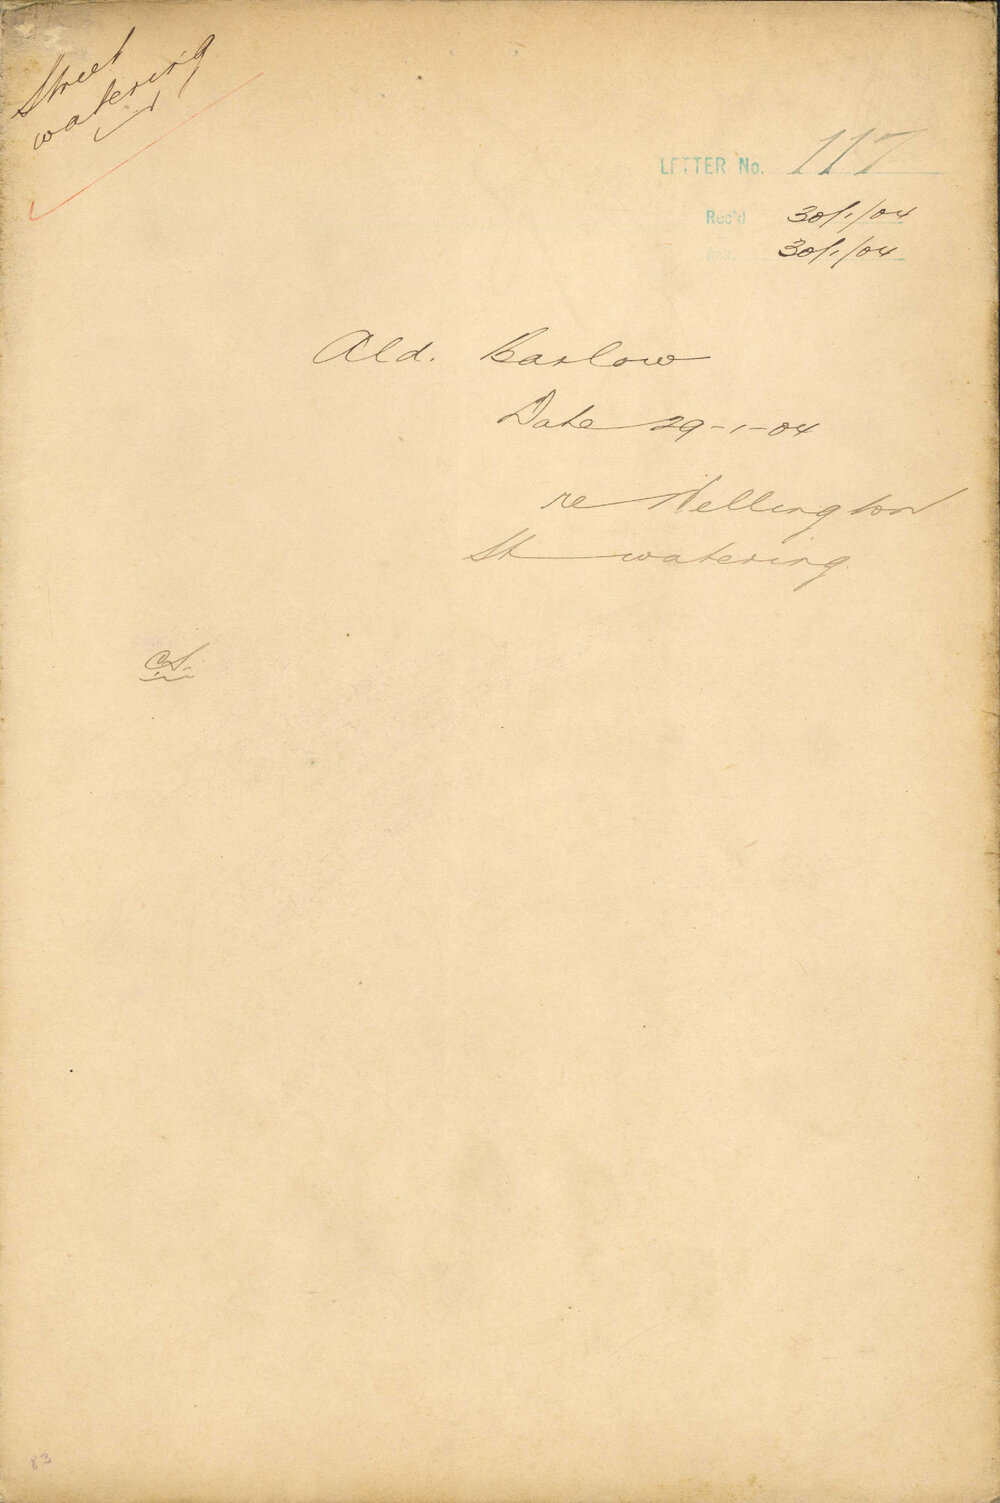 Street
watering
LETTER No. 117
Rec'd 30/1/04
30/1/04
Ald. Barlow
Date 29-1-04
re Wellington
St watering.
CS.
83